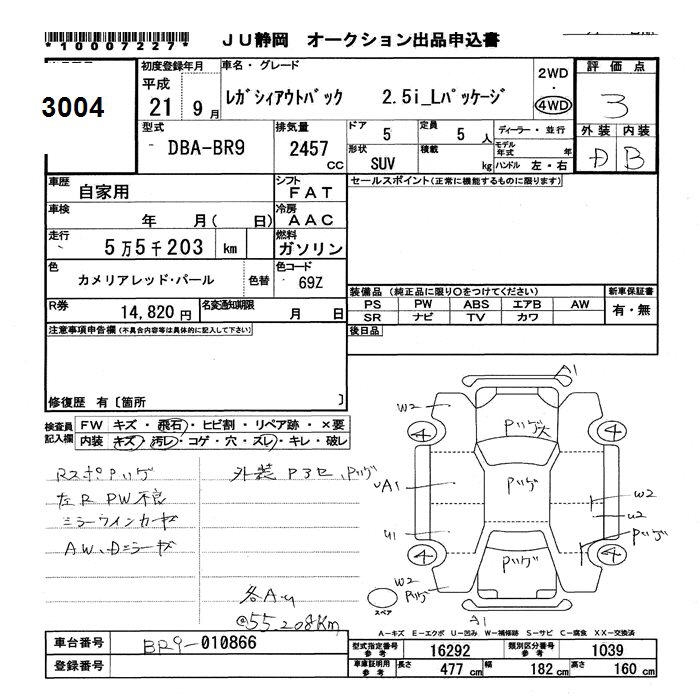 *10007227*
JU静岡 オークション出品申込書
3004
初度登録年月
平成
21 9月
車名・グレード
レガシィアウトバック 2.5i_Lパッケージ
2WD
・
4WD
評価点
3
外装 内装
D B
型式
DBA-BR9
排気量
2457
CC
ドア
5
定員
5人
ディーラー・並行
モデル年式 年
形状
SUV
積載
kg
ハンドル 左・右
車歴
自家用
シフト
FAT
セールスポイント(正常に機能するものに限ります)
車検
年 月( 日)
冷房
AAC
走行
5万5千203 km
燃料
ガソリン
色
カメリアレッド・パール
色替
色コード
69Z
装備品 (純正品に限り○をつけてください)
新車保証書
PS PW ABS エアB AW
SR ナビ TV カワ
有・無
R券
14,820円
名変通知期限
月 日
後日品
注意事項申告欄(不具合内容等は具体的に記入して下さい)
修復歴 有〔箇所 〕
検査員記入欄
FW キズ・飛石・ヒビ割・リペア跡・×要
内装 キズ・汚レ・コゲ・穴・スレ・キレ・破レ
RスポPハゲ
左R PW不良
ミラーウインカーヤケ
外装
各AU
@55.208Km
A1
W2
Pハゲ大
4 4
Pハゲ
UA1
W2
U2
U1
Pハゲ
4 4
W2
Pハゲ
Pハゲ
A1
スペア
A−キズ E−エクボ U−凹み W−補修跡 S−サビ C−腐食 XX−交換済
車台番号
BR9-010866
登録番号
型式指定番号 参考
16292
類別区分番号 参考
1039
車庫証明用 参考
長さ 477 cm
幅 182 cm
高さ 160 cm